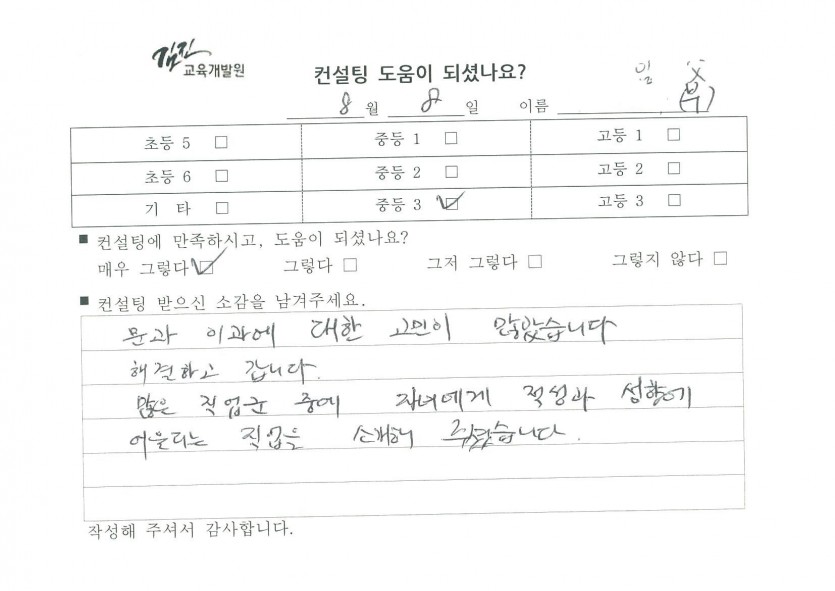 김진
교육개발원
컨설팅 도움이 되셨나요?
8월 8일 이름 임 父 (부)
초등 5 □ 중등 1 □ 고등 1 □
초등 6 □ 중등 2 □ 고등 2 □
기 타 □ 중등 3 ☑ 고등 3 □
■ 컨설팅에 만족하시고, 도움이 되셨나요?
매우 그렇다 ☑ 그렇다 □ 그저 그렇다 □ 그렇지 않다 □
■ 컨설팅 받으신 소감을 남겨주세요.
문과 이과에 대한 고민이 많았습니다
해결하고 갑니다.
많은 직업군 중에 자녀에게 적성과 성향에
어울리는 직업을 소개해 주셨습니다.
작성해 주셔서 감사합니다.